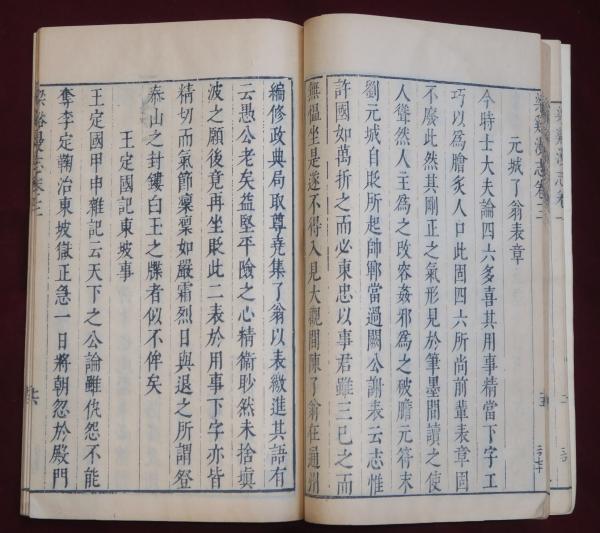 元城了翁表章
今時士大夫論四六多喜其用事精當下字工
巧以為膾炙人口此固四六所尚前輩表章固
不廢此然其剛正之氣形見於筆墨間讀之使
人聳然人主為之改容姦邪為之破膽元符末
劉元城自貶所起帥鄆當過闕公謝表云志惟
許國如萬折之而必東忠以事君雖三已之而
無慍坐是遂不得入見大觀間陳了翁在通州
編修政典局取尊堯集了翁以表繳進其語有
云愚公老矣益堅平險之心精衛眇然未捨塡
波之願後竟再坐貶此二表於用事下字亦皆
精切而氣節凜凜如嚴霜烈日與退之所謂登
泰山之封鏤白玉之牒者似不侔矣
王定國記東坡事
王定國甲申雜記云天下之公論雖仇怨不能
奪李定鞫治東坡獄正急一日將朝忽於殿門
梁谿漫志卷三